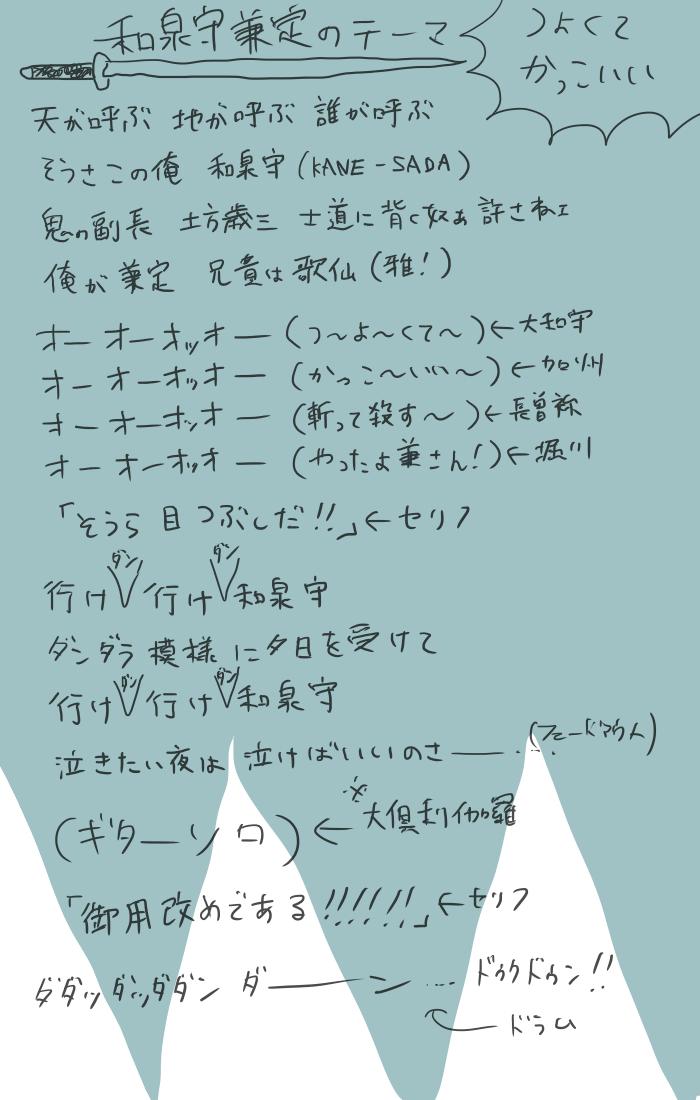 和泉守兼定のテーマ
つよくて
かっこいい
天が呼ぶ 地が呼ぶ 誰が呼ぶ
そうさこの俺 和泉守(KANE-SADA)
鬼の副長 土方歳三 士道に背く奴ぁ許さねェ
俺が兼定 兄貴は歌仙(雅!)
オー オーオッオー(つ～よ～くて～)←大和守
オー オーオッオー(かっこ～いい～)←加州
オー オーオッオー(斬って殺す～)←長曽祢
オー オーオッオー(やったよ兼さん!)←堀川
「そうら目つぶしだ!!」←セリフ
ダン ダン
行け 行け 和泉守
ダンダラ模様に夕日を受けて
ダン ダン
行け 行け 和泉守
泣きたい夜は 泣けばいいのさ――…
(フェードアウト)
(ギターソロ)←※大倶利伽羅
「御用改めである!!!!!!」←セリフ
ダダッダッダダン ダ――ン … ドゥクドゥン!!
←ドラム